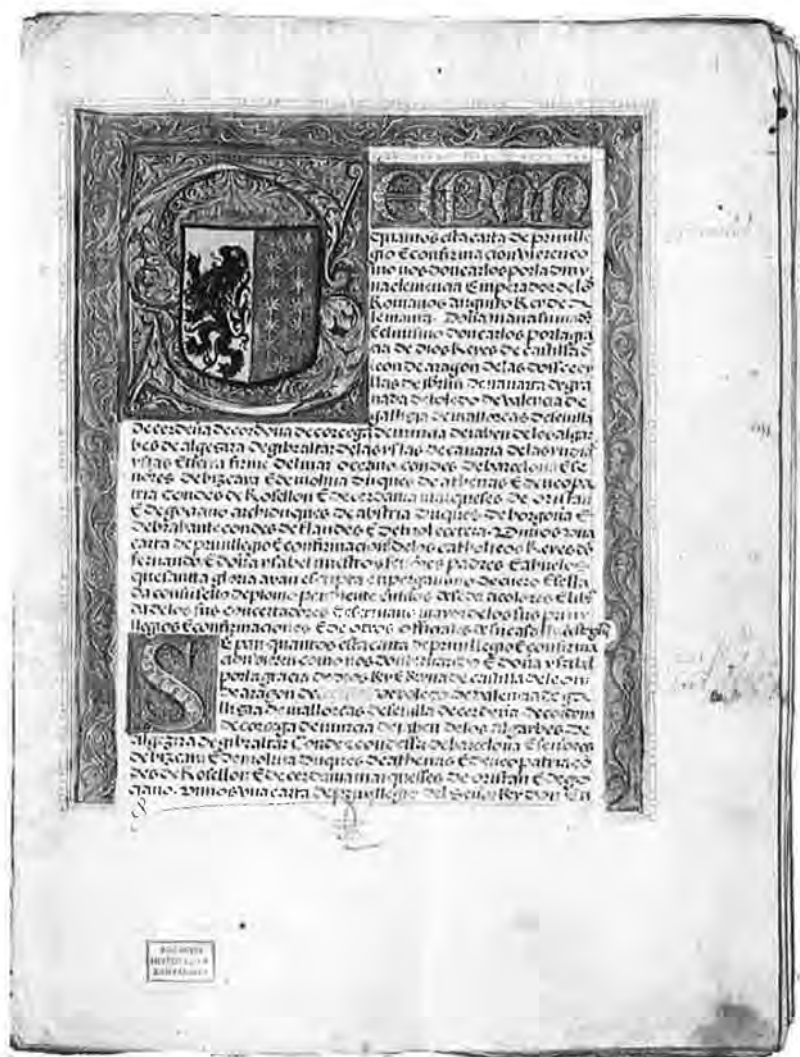 EPAN
quantos esta carta de preuille
gio E confirmacion vieren co
mo nos don carlos por la diuy
na clemencia Emperador de los
Romanos augusto Rey de A
lemania. Doña
El mismo don carlos por la gra
cia de dios Reyes de castilla de
leon de aragon de las dos ceci
lias de de nauarra de gra
nada de toledo de valencia de
gallizia de mallorcas de seuilla
de cerdeña de cordoua de corcega de murcia de jahen de los algar
bes de algezira de gibraltar de las yslas de canaria de las yndias
yslas E tierra firme del mar oceano condes de barcelona E se
ñores de bizcaya E de molina duques de athenas E de neopa
tria Condes de Rosellon E de cerdania marqueses de oristan
E de goçiano archiduques de abstria duques de borgoña E
de brabante condes de flandes E de tirol ecetera. Vimos vna
carta de preuillegio E confirmacion de los catholicos Reyes don
fernando E doña ysabel nuestros señores padres E abuelos
que santa gloria ayan escripta en pergamino de cuero E sella
da con su sello de plomo pendiente en filos de seda a colores E libra
da de los sus concertadores E escriuano mayor de los sus priuy
llegios E confirmaciones E de otros officiales de su casa
SE pan quantos esta carta de preuillegio E confirma
cion vieren como nos don fernando E doña ysabel
por la gracia de dios Rey E Reyna de castilla de leon
de aragon de toledo de valencia de ga
llizia de mallorcas de seuilla de cerdeña de cordoua
de corcega de murcia de jahen de los algarbes de
algezira de gibraltar Conde E condessa de barcelona E señores
de bizcaya E de molina duques de athenas E de neopatria con
des de Rosellon E de cerdania marqueses de oristan E de go
çiano. Vimos vna carta de preuillegio del Señor Rey don